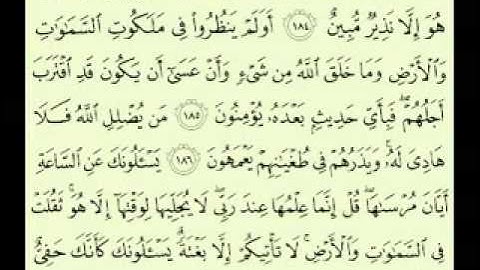 هُوَ إِلَّا نَذِيرٌ مُّبِينٌ ١٨٤ أَوَلَمْ يَنظُرُوا۟ فِى مَلَكُوتِ ٱلسَّمَٰوَٰتِ
وَٱلْأَرْضِ وَمَا خَلَقَ ٱللَّهُ مِن شَىْءٍ وَأَنْ عَسَىٰٓ أَن يَكُونَ قَدِ ٱقْتَرَبَ
أَجَلُهُمْ ۖ فَبِأَىِّ حَدِيثٍۭ بَعْدَهُۥ يُؤْمِنُونَ ١٨٥ مَن يُضْلِلِ ٱللَّهُ فَلَا
هَادِىَ لَهُۥ ۚ وَيَذَرُهُمْ فِى طُغْيَٰنِهِمْ يَعْمَهُونَ ١٨٦ يَسْـَٔلُونَكَ عَنِ ٱلسَّاعَةِ
أَيَّانَ مُرْسَىٰهَا ۖ قُلْ إِنَّمَا عِلْمُهَا عِندَ رَبِّى ۖ لَا يُجَلِّيهَا لِوَقْتِهَآ إِلَّا هُوَ ۚ ثَقُلَتْ
فِى ٱلسَّمَٰوَٰتِ وَٱلْأَرْضِ ۚ لَا تَأْتِيكُمْ إِلَّا بَغْتَةً ۗ يَسْـَٔلُونَكَ كَأَنَّكَ حَفِىٌّ